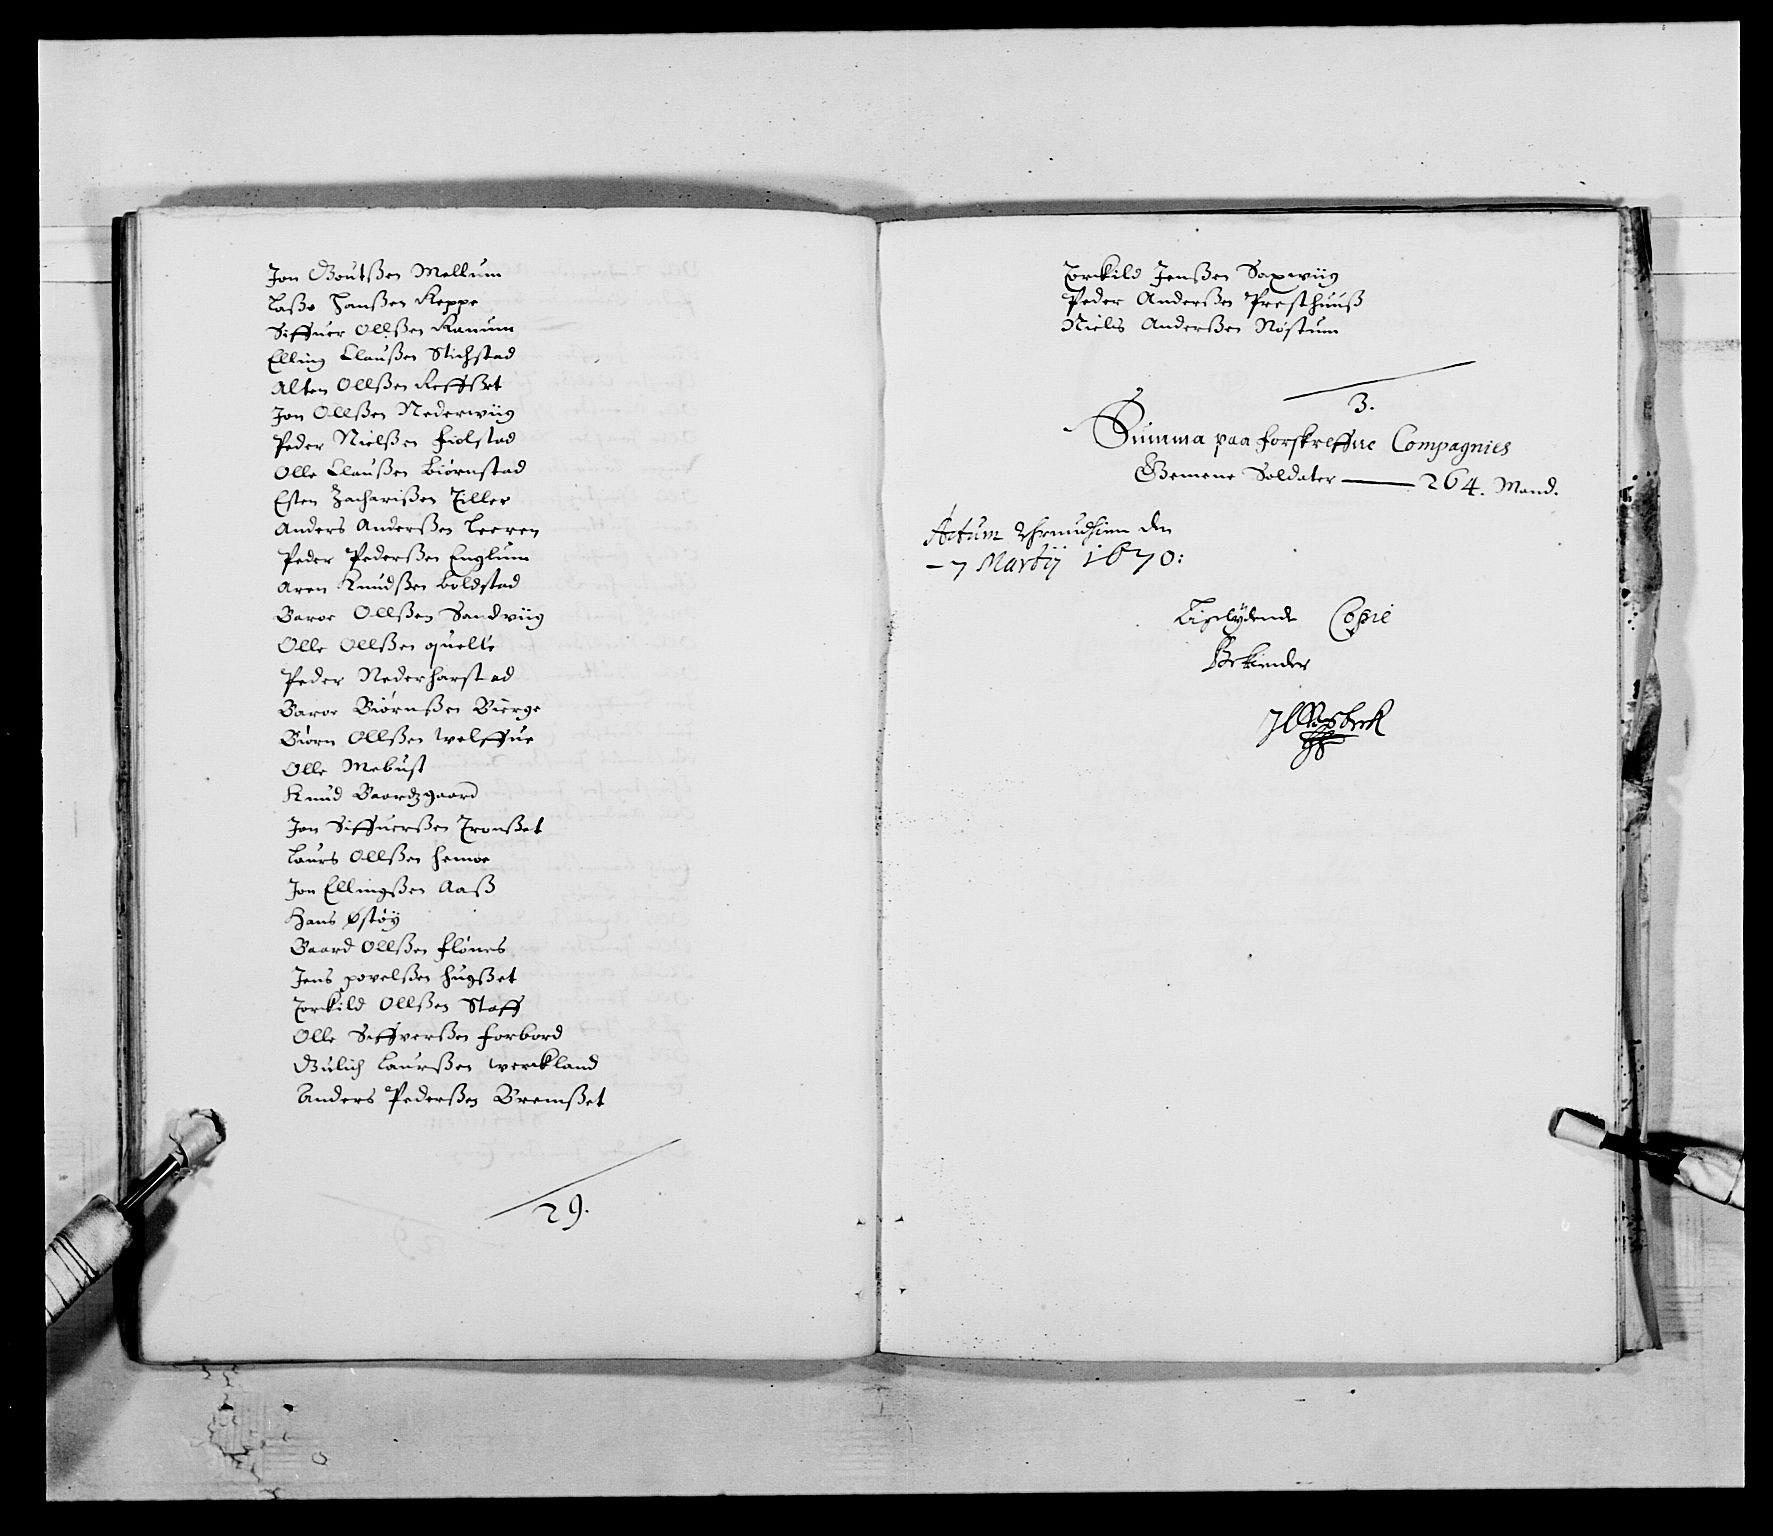 Jon Goutßen Mellum
Laße Hanßen Reppe
Siffuer Ollßen Ranum
Elling Claußen Stichstad
Alten Ollßen Reffset
Jon Ollßen Nederwiig
Peder Nielßen Fiolstad
Olle Claußen Biørnstad
Esten Zacharißen Tiller
Anders Anderßen Leeren
Peder Pederßen Englum
Aren Knudßen Boldstad
Baroe Ollßen Sandviig
Olle Ollßen quelle
Peder Nederharstad
Baroe Biørnßen Bierge
Biørn Ollßen Welffue
Olle Mebust
Knud Baardzgaard
Jon Siffuerßen Tronßet
Laurs Ollßen Hemoe
Jon Ellingßen Aaß
Hans Østøy
Baard Ollßen Flønes
Jens Povelßen Hugßet
Torkild Ollßen Staff
Olle Siffverßen Forbord
Gulich Laurßen Werckland
Anders Pederßen Bremßet
29.
Torkild Jenßen Saxwiig
Peder Anderßen Presthuuß
Niels Anderßen Nøstum
3.
Summa paa forskreffne Compagnies
Gemene Soldater — 264. Mand.
Actum Thrundhiem den
-7 Martij 1670:
Ligelydende Copie
Bekiender